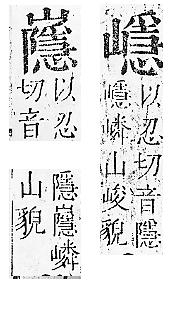 以忍切音隱
嶙山峻貌
嶾
以忍
切音
隱嶾嶙
山貌